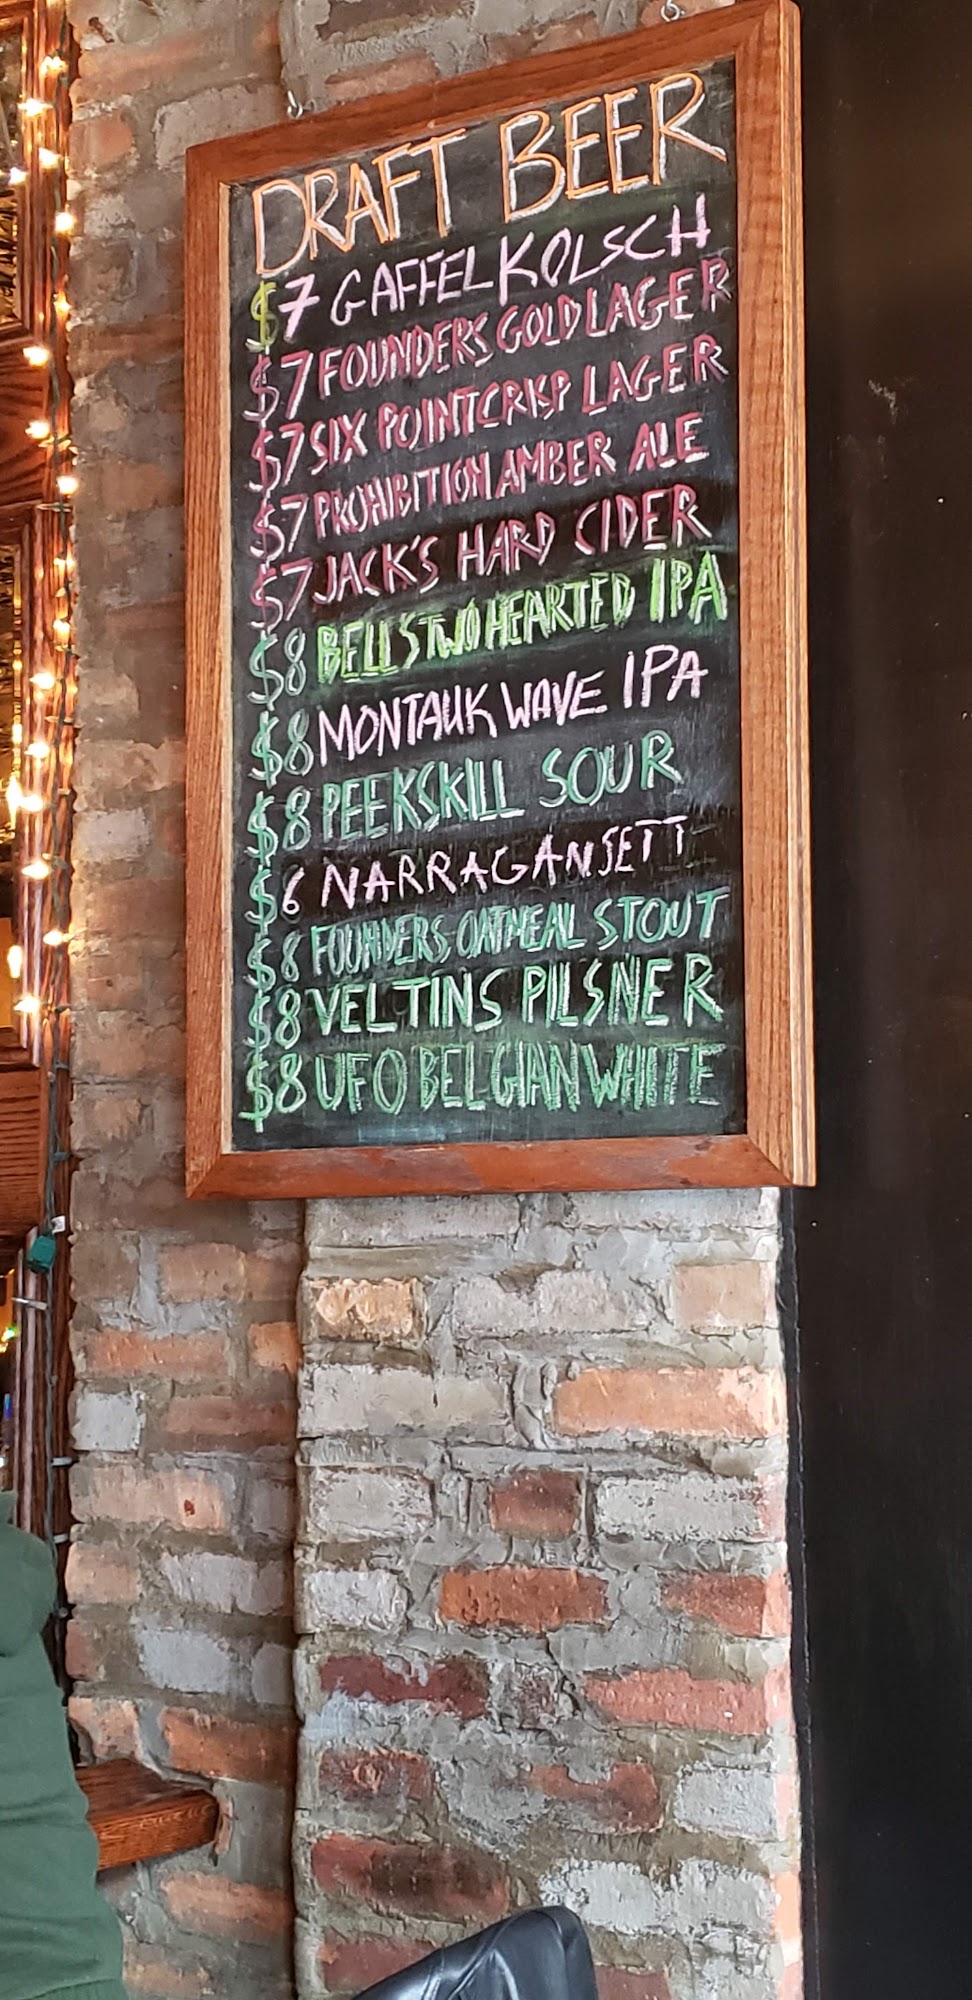 DRAFT BEER
$7 GAFFEL KOLSCH
$7 FOUNDERS GOLD LAGER
$7 SIX POINT CRISP LAGER
$7 PROHIBITION AMBER ALE
$7 JACK'S HARD CIDER
$8 BELLS TWO HEARTED IPA
$8 MONTAUK WAVE IPA
$8 PEEKSKILL SOUR
$6 NARRAGANSETT
$8 FOUNDERS OATMEAL STOUT
$8 VELTINS PILSNER
$8 UFO BELGIAN WHITE